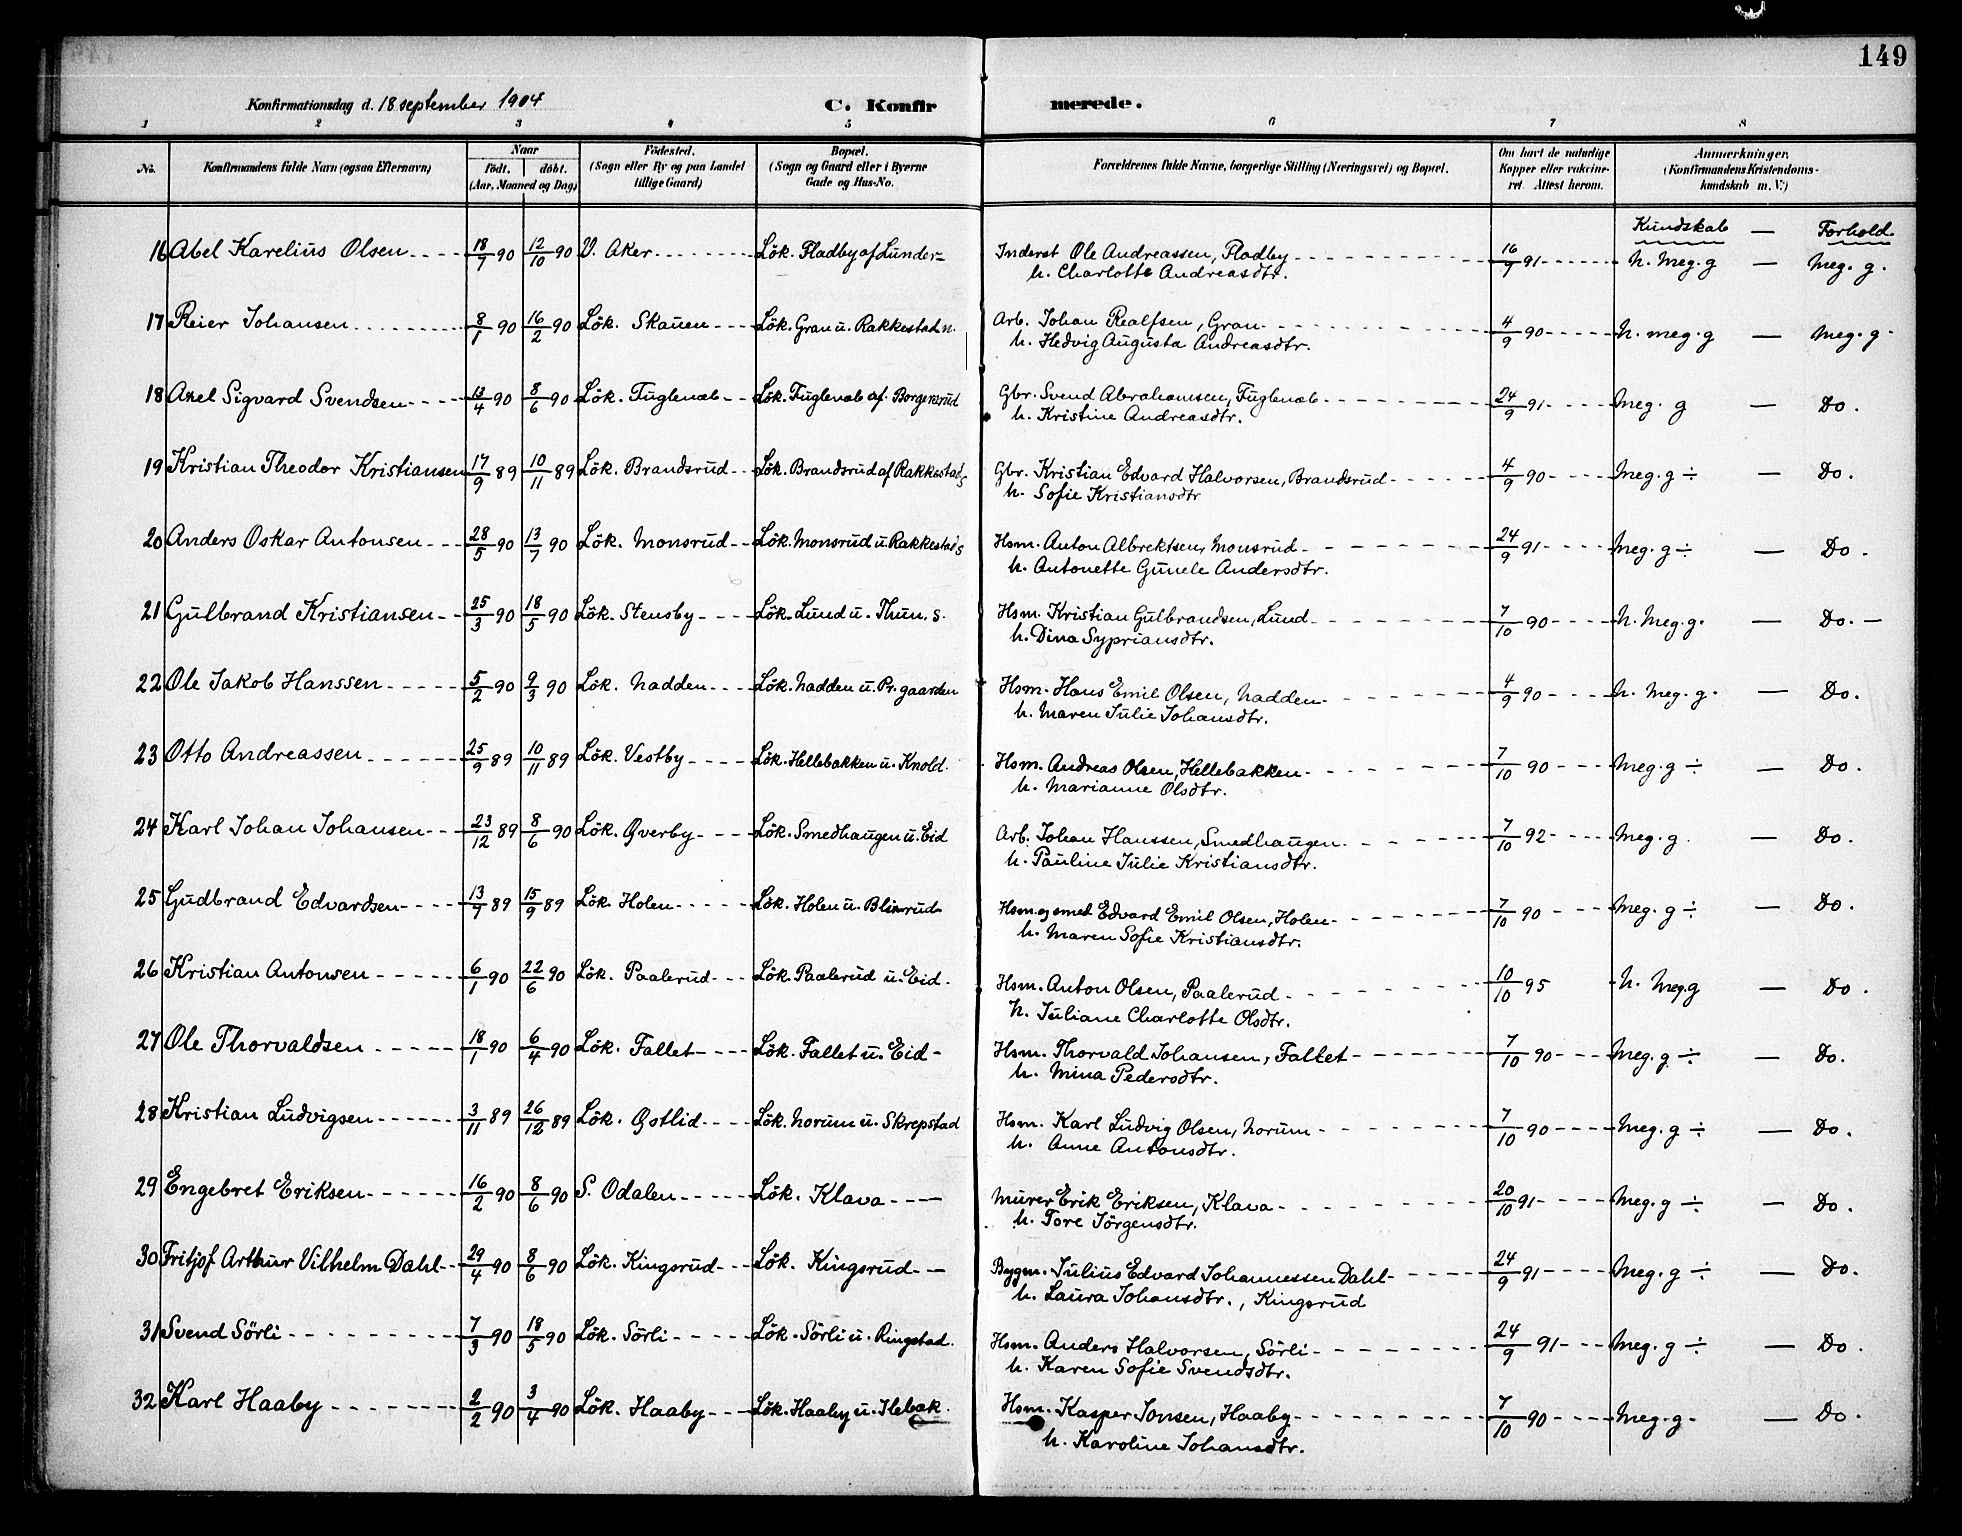 149
Konfirmationsdag d. 18 september 1904 C. Konfirmerede.
1 2 3 4 5 6 7 8
No. Konfirmandens fulde Navn (ogsaa Efternavn) Naar født. døbt. (Aar, Maaned og Dag) Fødested. (Sogn eller By og paa Landet tillige Gaard) Bopæl. (Sogn og Gaard eller i Byerne Gade og Hus-No. Forældrenes fulde Navne, borgerlige Stilling (Næringsvei) og Bopæl. Om havt de naturlige Kopper eller vaccineret. Attest herom. Anmærkninger. (Konfirmandens Kristendomskundskab m. V.)
Kundskab — Forhold
16 Abel Karelius Olsen 18/7 90 12/10 90 V. Aker Lök. Fladby af Lunder Inderst Ole Andreassen, Fladby 16/9 91 N. Meg. g — Meg. g.
h. Charlotte Andreasdtr.
17 Reier Johansen 8/1 90 16/2 90 Lök. Skauen Lök. Gran u. Rakkestad n. Arb. Johan Realfsen, Gran 4/9 90 N. meg. g — Meg. g.
h. Hedvig Augusta Andreasdtr.
18 Axel Sigvard Svendsen 13/4 90 8/6 90 Lök. Fuglenæb Lök. Fuglenæb af Borgersrud Gbr. Svend Abrahamsen, Fuglenæb 24/9 91 Meg. g — Do.
h. Kristine Andreasdtr.
19 Kristian Theodor Kristiansen 17/9 89 10/11 89 Lök. Brandsrud Lök. Brandsrud af Rakkestad s Gbr. Kristian Edvard Halvorsen, Brandsrud 4/9 90 Meg. g ÷ — Do.
h. Sofie Kristiansdtr
20 Anders Oskar Antonsen 28/5 90 13/7 90 Lök. Monsrud Lök. Monsrud u. Rakkestad s Hsm. Anton Albrektsen, Monsrud 24/9 91 Meg. g ÷ — Do.
h. Antonette Gunele Andersdtr.
21 Gulbrand Kristiansen 25/3 90 18/5 90 Lök. Stensby Lök. Lund u. Thun. s. Hsm. Kristian Gulbrandsen, Lund 7/10 90 N. Meg. g. — Do. —
h. Dina Sypriansdtr.
22 Ole Jakob Hanssen 5/2 90 9/3 90 Lök. Nadden Lök. Nadden u. Pr. gaarden Hsm. Hans Emil Olsen, Nadden 4/9 90 N. Meg. g. — Do.
h. Maren Julie Johansdtr.
23 Otto Andreassen 25/9 89 10/11 89 Lök. Vestby Lök. Hellebakken u. Knold. Hsm. Andreas Olsen, Hellebakken 7/10 90 Meg. g ÷ — Do.
h. Marianne Olsdtr.
24 Karl Johan Johansen 23/12 89 8/6 90 Lök. Qverby Lök. Smedhaugen u. Eid Arb. Johan Hanssen, Smedhaugen 7/10 92 Meg. g. — Do.
h. Pauline Julie Kristiansdtr.
25 Gudbrand Edvardsen 13/7 89 15/9 89 Lök. Holen Lök. Holen u. Blixrud Hsm. og smed Edvard Emil Olsen, Holen 7/10 90 Meg. g ÷ — Do.
h. Maren Sofie Kristiansdtr.
26 Kristian Antonsen 6/1 90 22/6 90 Lök. Paalerud Lök. Paalerud u. Eid. Hsm. Anton Olsen, Paalerud 10/10 95 N. Meg. g — Do.
h. Juliane Charlotte Olsdtr.
27 Ole Thorvaldsen 18/1 90 6/4 90 Lök. Fallet Lök. Fallet u. Eid Hsm. Thorvald Johansen, Fallet 7/10 90 Meg. g ÷ — Do.
h. Mina Pedersdtr.
28 Kristian Ludvigsen 3/11 89 26/12 89 Lök. Østlid Lök. Norum u. Skrepstad Hsm. Karl Ludvig Olsen, Norum 7/10 90 Meg. g ÷ — Do.
h. Anne Antonsdtr.
29 Engebret Eriksen 16/2 90 8/6 90 S. Odalen Lök. Klava Murer Erik Eriksen, Klava 20/10 91 Meg. g ÷ — Do.
h. Tore Jörgensdtr.
30 Fritjof Arthur Vilhelm Dahl 29/4 90 8/6 90 Lök. Kingsrud Lök. Kingsrud Bygm. Julius Edvard Johannessen Dahl 24/9 91 Meg. g ÷ — Do.
h. Laura Johansdtr., Kingsrud
31 Svend Sörli 7/3 90 18/5 90 Lök. Sörli Lök. Sörli u. Ringstad. Hsm. Anders Halvorsen, Sörli 24/9 91 Meg. g ÷ — Do.
h. Karen Sofie Svendsdtr.
32 Karl Haaby 2/2 90 3/4 90 Lök. Haaby Lök. Haaby u. Ilebæk. Hsm. Kasper Jonsen, Haaby 7/10 90 Meg. g. — Do.
h. Karoline Johansdtr.